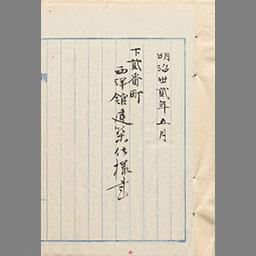 明治廿貳年五月
下貳番町
西洋館建築仕様書